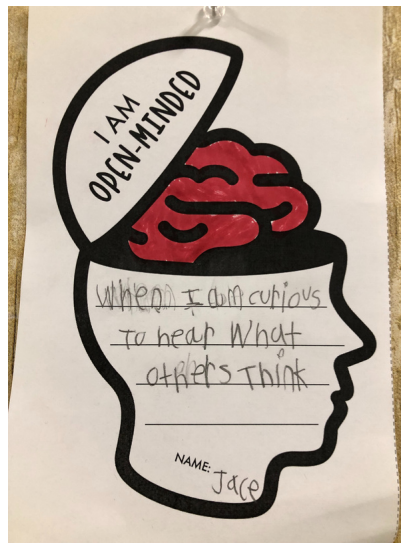 I AM
OPEN-MINDED
When I am curious
To hear What
others Think
NAME: Jace